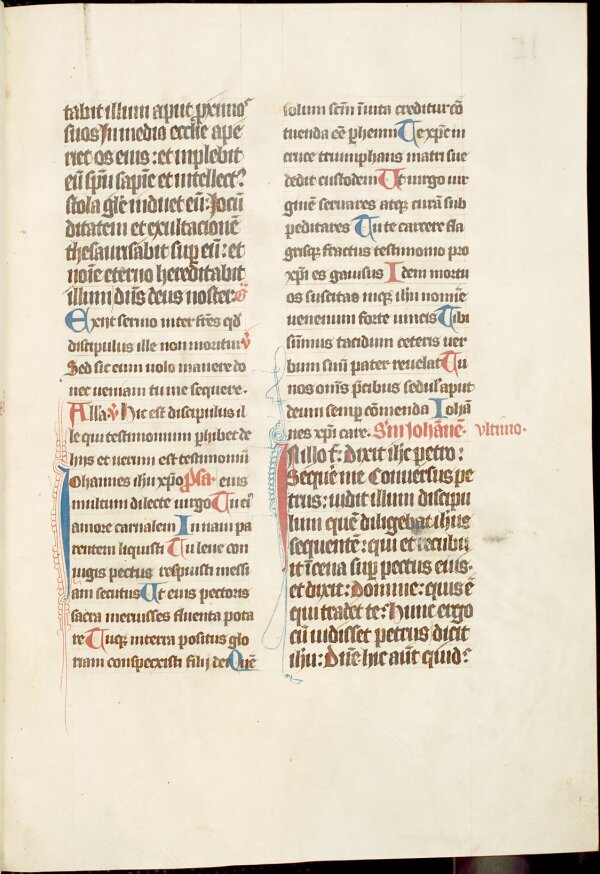 tabit illum aput p̱ximos
suos In medio eccl̄ie ape
riet os eius : et inplebit
eū sp̄u sapīe et intellect᷒
stola gl̄e induet eū : Iocū
ditatem et exultacionē
thesaurisabit sup̱ eū : et
noīe eterno hereditabit
illum dn̄s deus noster. G̉
Exiit sermo inter fr̄es qd̓
discipulus ille non moritur V̉
Sed sic eum uolo manere do
nec ueniam tu me sequere.
Alla. V̉ Hic est discipulus il
le qui testimonium ꝑhibet de
hiis et uerum est testimoniū
Iohannes ih̄u xp̄o Ꝓsa. eius
multum dilecte uirgo Tu ei᷒
amore carnalem In naui pa
rentem liquisti Tu leue con
iugis pectus respuisti messi
am secutus Ut eius pectoris
sacra meruisses fluenta pota
re Tuq̄ in terra positus glo
riam conspexisti filij dei Quē
solum sc̄m in uita creditur cō
tuenda cē ꝑhenni Te xp̄c in
cruce triumphans matri sue
dedit custodem Ut uirgo uir
ginē seruares atq̄ curā sub
peditares Tu te carcere fla
grisq̄ fractus testimonio pro
xp̄i es gauisus Idem mortu
os suscitas inq̄ ih̄u nomīe
uenenum forte uincis Tibi
sūmus tacidum ceteris uer
bum suū pater reuelat Tu
nos om̄s p̄cibus sedul᷒ aput
deum semꝑ cōmenda Iohā
nes xp̄i care. S̄m Johānē. vltimo.
In illo t̄: dixit ih̄c petro:
Sequere me Conuersus pe
trus : uidit illum discipu
lum quē diligebat ih̄us
sequentē : qui et recubu
it ī cena sup̱ pectus eius.
et dixit: Domine: quis ē
qui tradet te: Hunc ergo
cū uidisset petrus dicit
ih̄u: Dn̄e hic aūt quid?